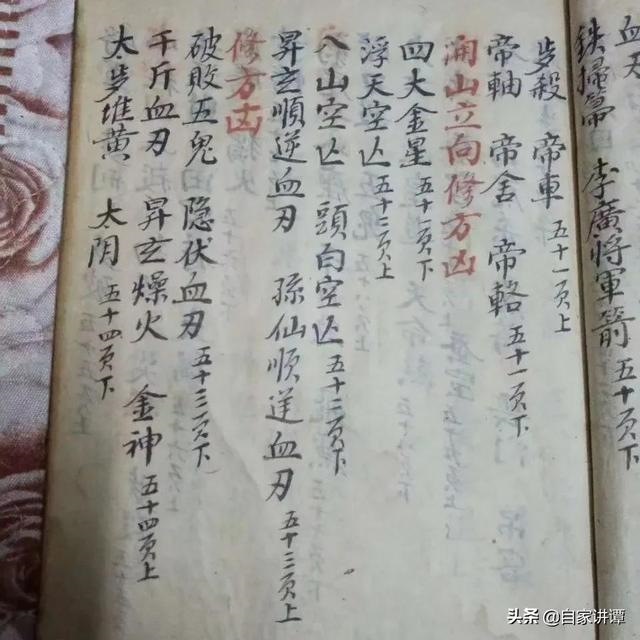 血刃
鉄掃帚 李廣將軍箭 五十页
步殺 帝車 五十一页上
帝軸 帝舍 帝輅 五十一页下
開山立向修方凶
四大金星 五十一页下
浮天空亡 五十二页上
八山空亡 頭白空亡 五十二页下
昇玄順逆血刃 孫仙順逆血刃 五十三页上
修方凶
破敗五鬼 隐伏血刃 五十三页下
千斤血刃 昇玄燥火 金神 五十四页上
太步堆黄 太阴 五十四页下
头条 @自家讲谭